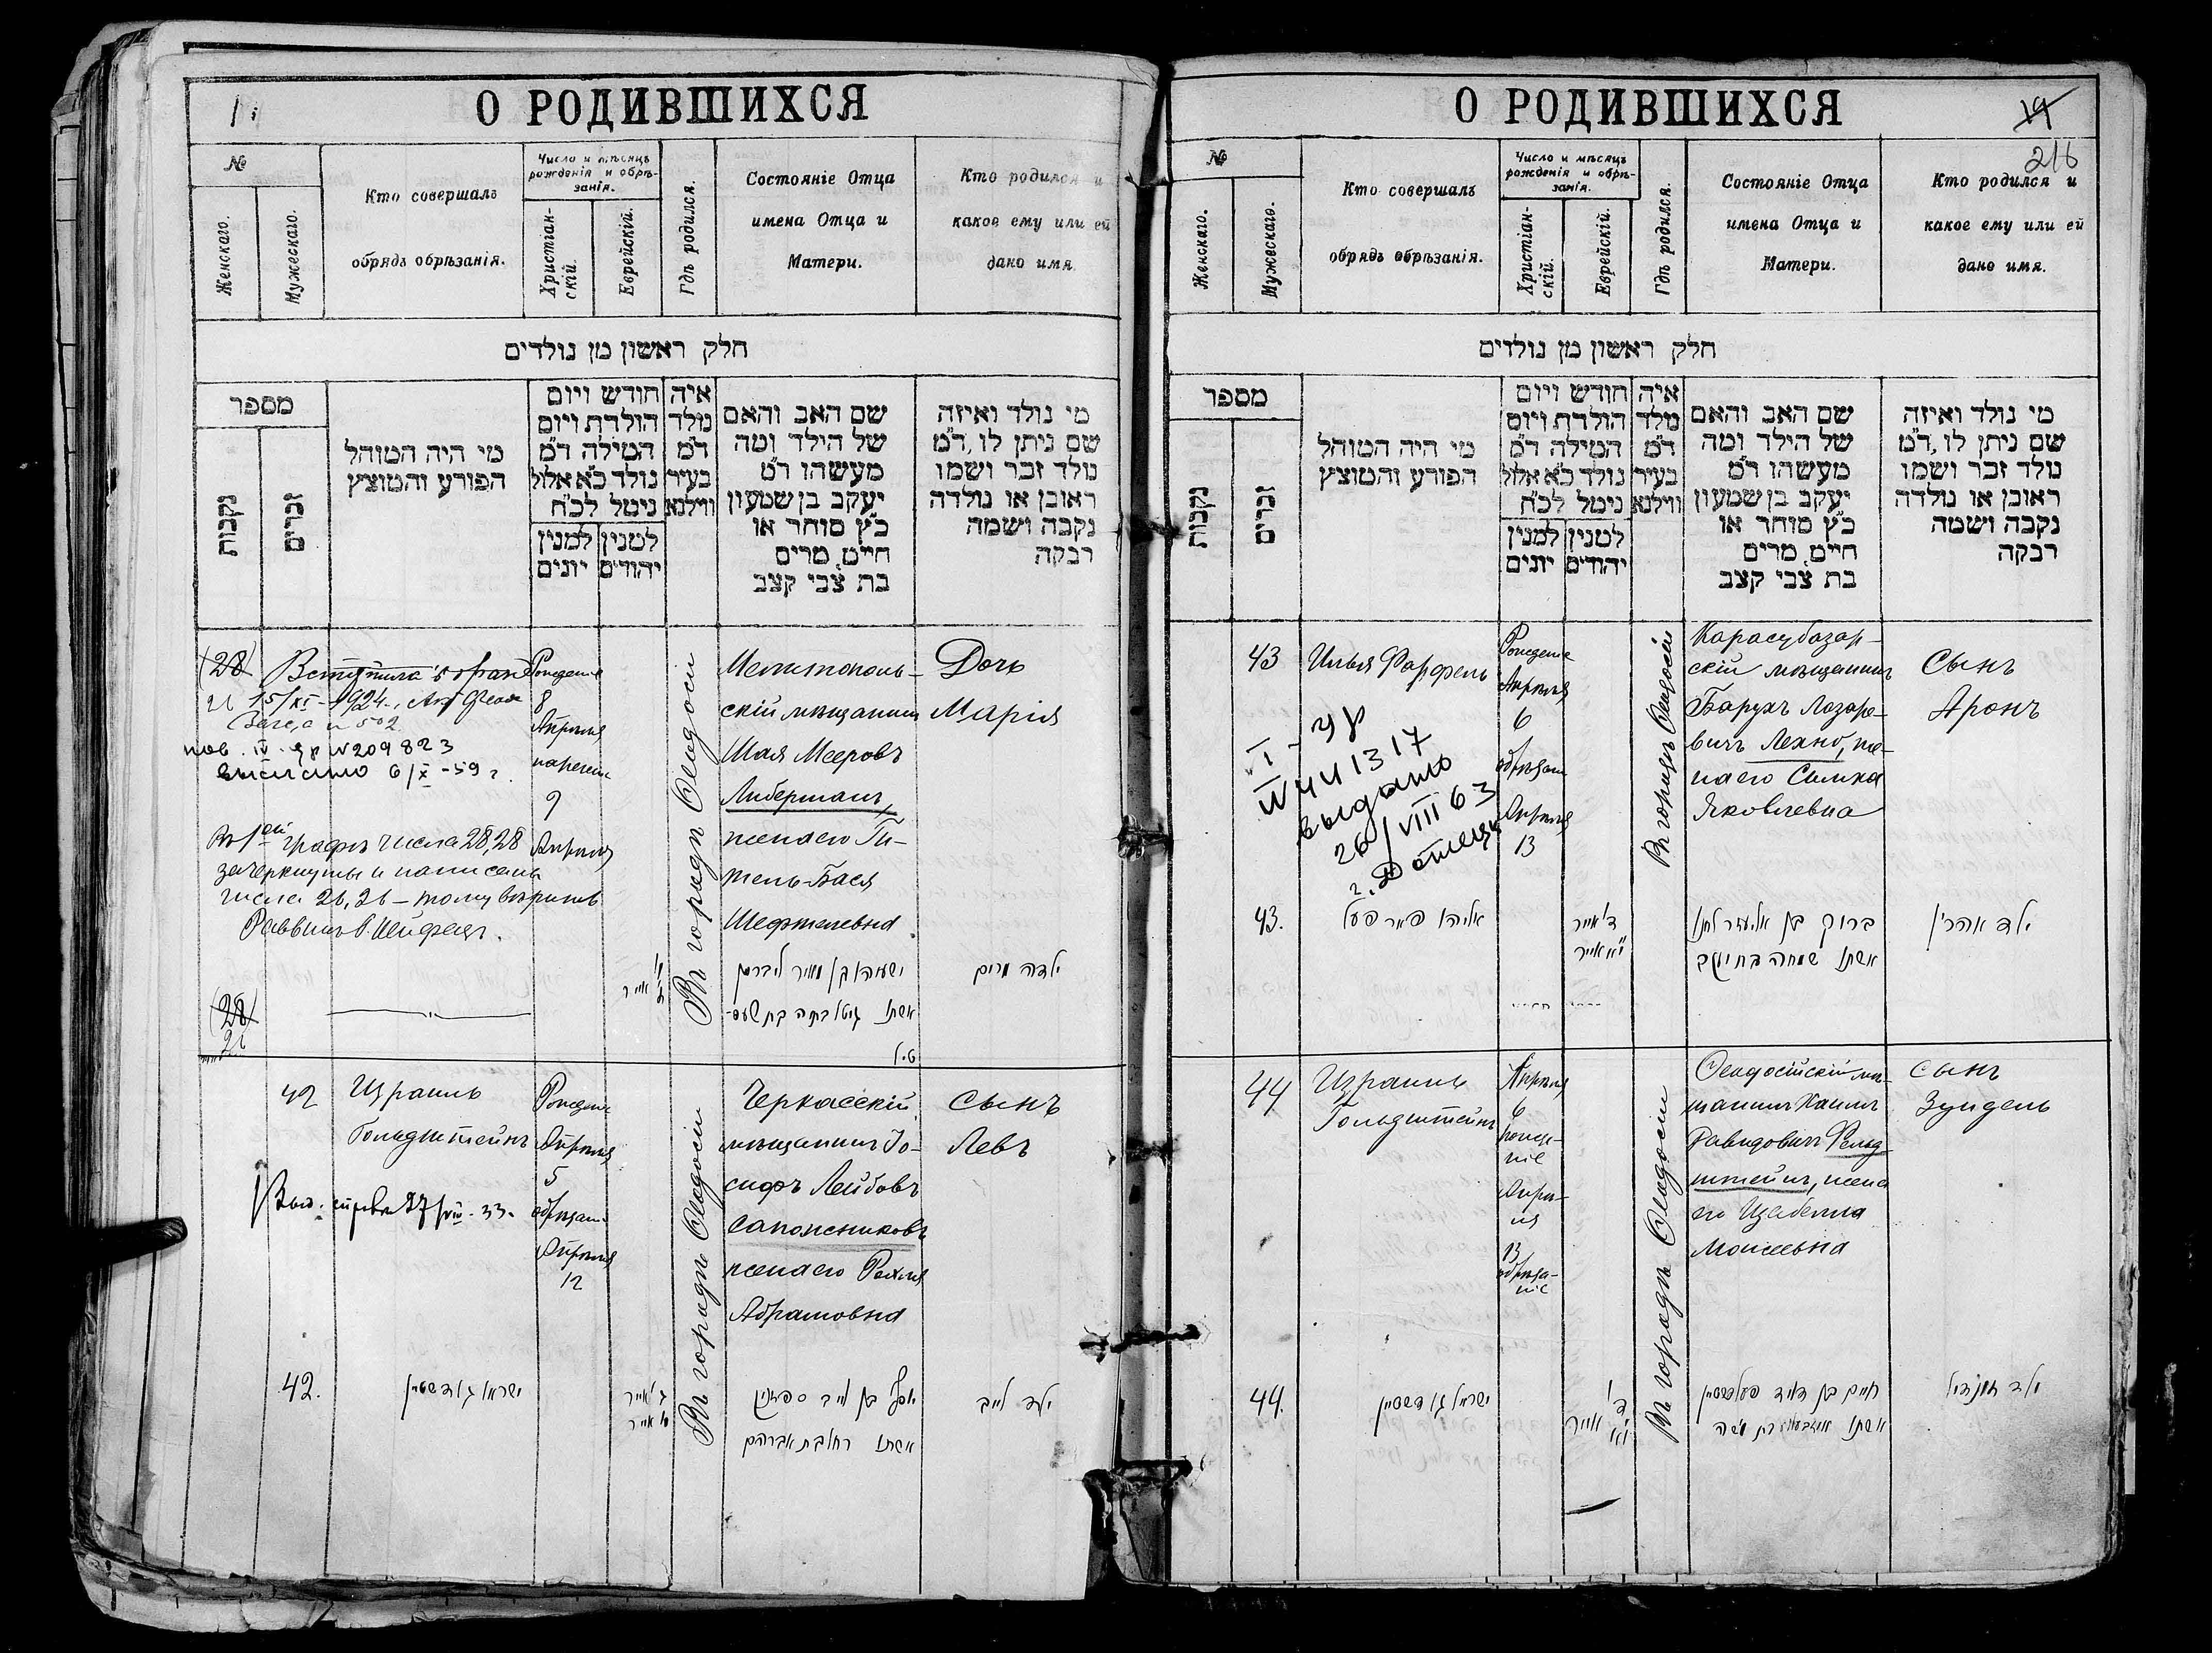 О РОДИВШИХСЯ
№
Женскаго.
Мужескаго.
Кто совершалъ
обрядъ обрѣзанія.
Число и мѣсяцъ
рожденія и обрѣ-
занія.
Христіан-
скій.
Еврейскій.
Гдѣ родился.
Состояніе Отца
имена Отца и
Матери.
Кто родился и
какое ему или ей
дано имя.
חלק ראשון מן נולדים
מספר
נקבות
זכרים
מי היה המוהל
הפורע והמוצץ
חודש ויום
הולדת ויום
המילה ד"מ
נולד כ"א אלול
נימל לכ"ח
למנין
יונים
למנין
יהודים
איה
נולד
ד"מ
בעיר
ווילנא
שם האב והאם
של הילד ומה
מעשהו ד"מ
יעקב בן שמעון
כ"ץ סוחר או
חייט, מרים
בת צבי קצב
מי נולד ואיזה
שם ניתן לו, ד"מ
נולד זכר ושמו
ראובן או נולדה
נקבה ושמה
רבקה
(28)
26
15/XI-1924
№ 502
№ 209823
6/X-59 г.
Въ 1ой графѣ числа 28, 28
зачеркнуты и написаны
числа 26, 26 – тому вѣрить
Раввинъ
Рожденіе
8
Апрѣля
наречен
9
Апрѣля
Въ городѣ Ѳеодосіи
Мелитополь-
скій мѣщанинъ
Шая Мееровъ
Либерманъ,
жена его Ги-
тель-Бася
Шефтелевна
Дочь
Марія
ילדה מרים
(28)
26
42
Израиль
Гольдштейнъ
27/VII-33.
Рожденіе
Апрѣля
5
обрѣзан.
Апрѣля
12
Въ городѣ Ѳеодосіи
Черкасскій
мѣщанинъ Іо-
сифъ Лейбовъ
Сапожниковъ
жена его Рахля
Абрамовна
Сынъ
Левъ
42.
אשתו רחל בת אברהם
ילד לייב
О РОДИВШИХСЯ
19
216
№
Женскаго.
Мужескаго.
Кто совершалъ
обрядъ обрѣзанія.
Число и мѣсяцъ
рожденія и обрѣ-
занія.
Христіан-
скій.
Еврейскій.
Гдѣ родился.
Состояніе Отца
имена Отца и
Матери.
Кто родился и
какое ему или ей
дано имя.
חלק ראשון מן נולדים
מספר
נקבות
זכרים
מי היה המוהל
הפורע והמוצץ
חודש ויום
הולדת ויום
המילה ד"מ
נולד כ"א אלול
נימל לכ"ח
למנין
יונים
למנין
יהודים
איה
נולד
ד"מ
בעיר
ווילנא
שם האב והאם
של הילד ומה
מעשהו ד"מ
יעקב בן שמעון
כ"ץ סוחר או
חייט, מרים
בת צבי קצב
מי נולד ואיזה
שם ניתן לו, ד"מ
נולד זכר ושמו
ראובן או נולדה
נקבה ושמה
רבקה
43
Илья Фарфель
I-УР
№ 441317
выдано
26/VIII 63
г. Донецк
Рожденіе
Апрѣля
6
обрѣзан
Апрѣля
13
Въ городѣ Ѳеодосіи
Карасубазар-
скій мѣщанинъ
Барухъ Лазаре-
вичъ Лехно, же-
на его Симха
Яковлевна
Сынъ
Аронъ
43.
ד' אייר
י"א אייר
אשתו שמחה בת יעקב
ילד אהרן
44
Израиль
Гольдштейнъ
Апрѣля
6
рожде-
ніе
Апрѣ-
ля
13
обрѣза-
ніе
Въ городѣ Ѳеодосіи
Ѳеодосійскій мѣ-
щанинъ Хаимъ
Давидовичъ Фельд-
штейнъ, жена
его Изабелла
Моисеевна
Сынъ
Зундель
44.
ישראל גולדשטיין
חיים בן דוד פעלדשטיין
ילד זונדיל